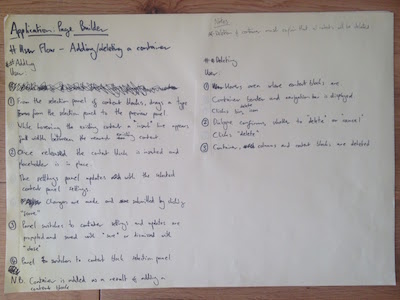 Application: Page Builder
# User Flow - Adding/deleting a container
## Adding
User:
① From the selection panel of content blocks, drags a type
from the selection panel to the preview panel.
While hovering the existing content a "insert" line appears
between the nearest existing content
② Once released the content blocks is inserted and
placeholder is in place.
The settings panel updates with the selected
content panel settings.
Changes are made and submitted by clicking
"save"
③ Panel switches to container settings and updates are
prepopulated and saved with "save" or dismissed with
"close"
④ Panel switches to content block selection panel
N.B. Container is added as a result of adding a
content block
Notes
* Deletion of container must confirm that contents will be deleted
## Deleting
User:
① hovers area where content blocks are.
Container border and navigation bar is displayed
Clicks delete icon
② Dialogue confirms whether to "delete" or "cancel"
Clicks "delete"
③ Container, columns and content blocks are deleted